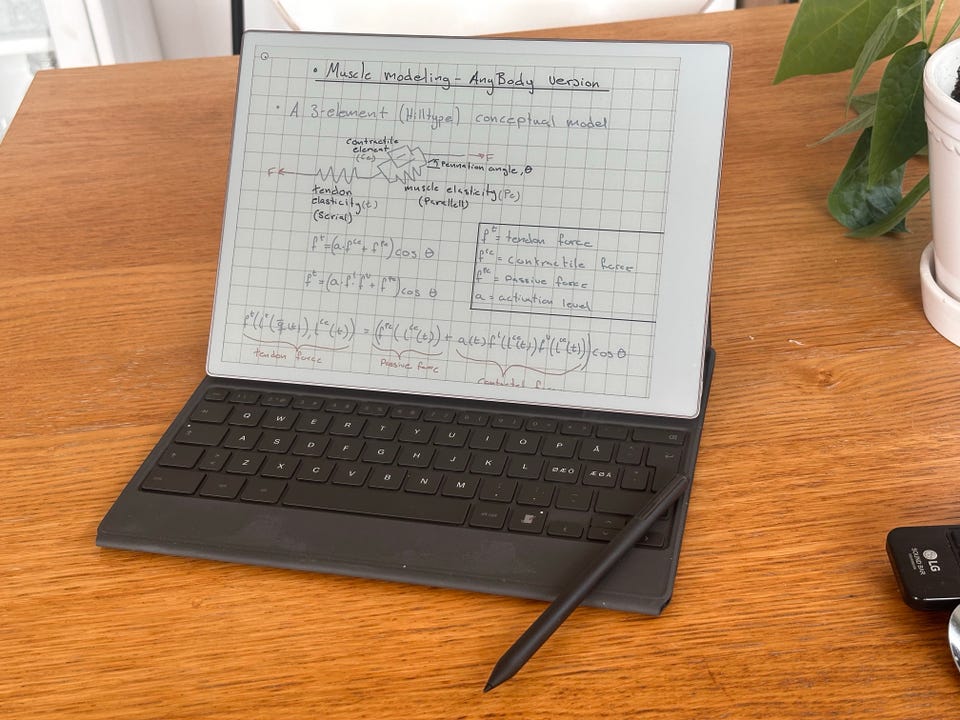 • Muscle modeling - AnyBody version
• A 3-element (Hilltype) conceptual model
contractile
element
(Ce)
F
Pennation angle, θ
F
tendon
elasticity(t)
(Serial)
muscle elasticity(Pe)
(Parallell)
f^t = (a·f^ce + f^pe) cos θ
f^t = (a·f^l·f^v + f^pe) cos θ
f^t = tendon force
f^ce = contractile force
f^pe = passive force
a = activation level
= (f^pe(l^ce(t)) + a(t) f^l(l^ce(t)) f^v(l^ce(t))) cos θ
tendon force
Passive force
Q W E R T Y U I O P Å
A S D F G H J K L ØÆÖ ÆØÄ
Z X C V B N M
LG
SOUND BAR